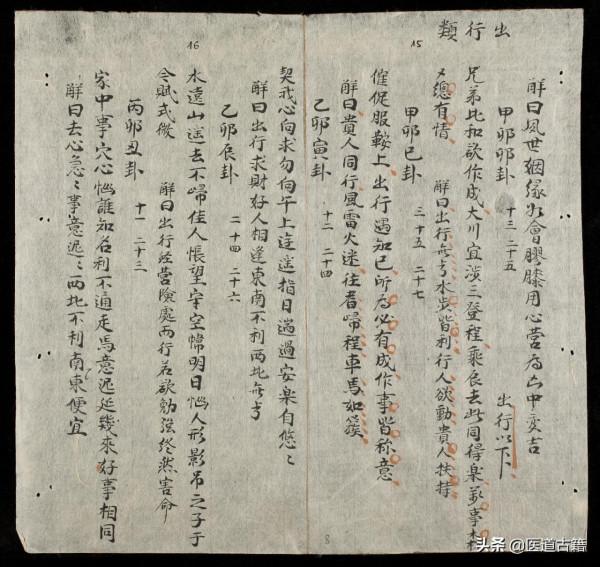 出行類
15
解曰夙世姻缘为會膠膝用心营为凶中变吉
甲卯卯卦 十三 二十五 出行以下
兄弟比和欲作成大川宜涉三登程乘良去此同得樂萬事
總有情 解曰出行無亏水步皆利行人欲動貴人扶持
甲卯巳卦 三十五 二十七
催促服鞍上出行遇知已所为必有成作事皆称意
解曰貴人同行風雷火迷往看归程車馬如簇
乙卯寅卦 十二 二十四
16
契戒心向求勿向午上迍邅指日遄過安樂自悠〻
解曰出行求財好人相逢東南不利西北無亏
乙卯辰卦 二十四 二十六
水遠山遥去不歸佳人悵望字空幃明日惱人形影吊之子于
今賦式微 解曰出行经营險處而行若欲勉强终然害命
丙卯丑卦 十一 二十三
家中事冗心惱誰知名利不通走馬意遲延幾來好事相同
解曰去心急〻事意遲〻西北不利南東便宜
8
头条 @医道古籍